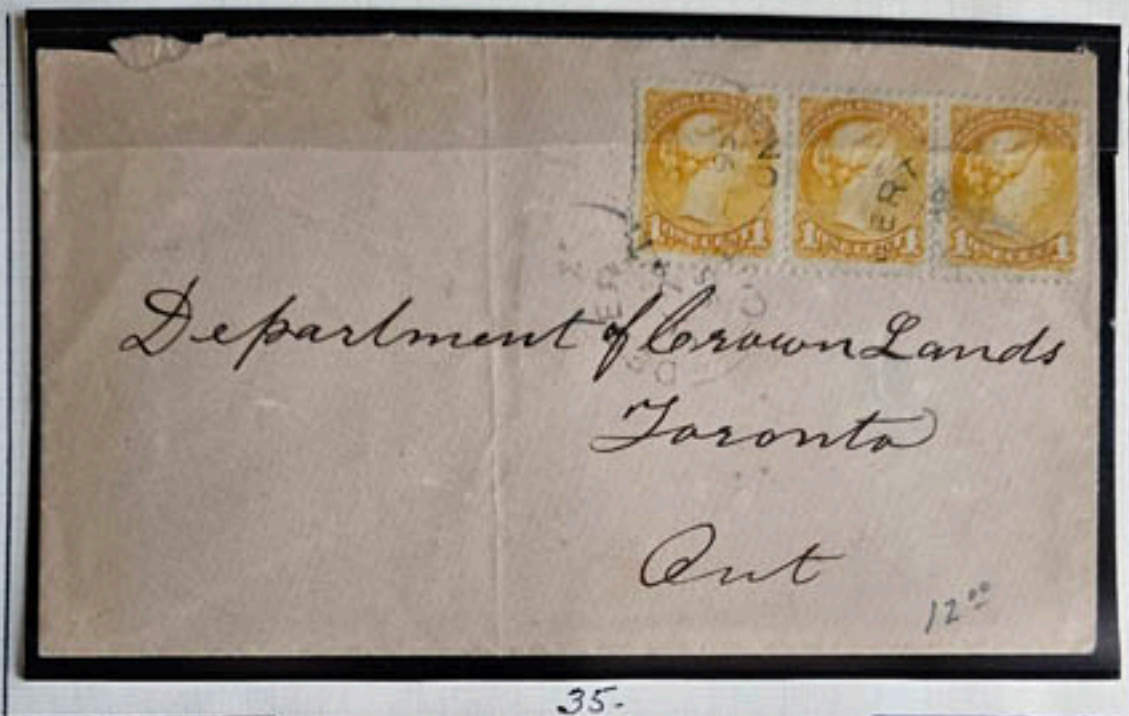 1 ONE CENT 1
1 ONE CENT 1
1 ONE CENT 1
Department of Crown Lands
Toronto
Ont
12⁰⁰
35-